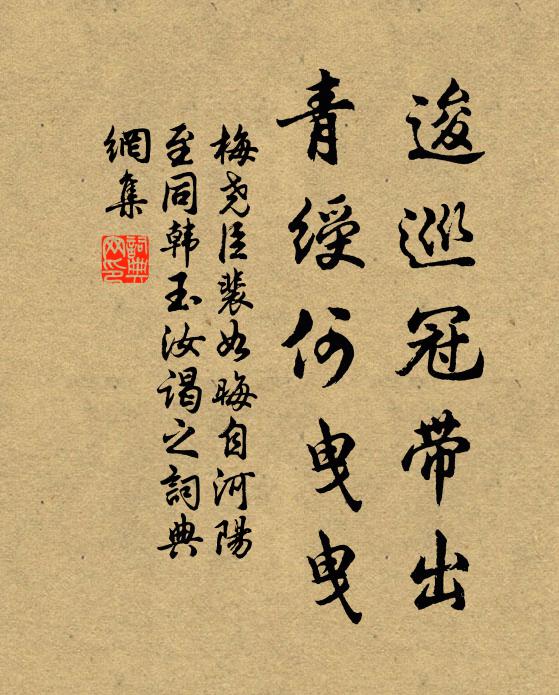 逡巡冠带出
青绶何曳曳
梅尧臣裴如晦自河陽
至同韩玉汝谒之詞典
網集
詞典網印